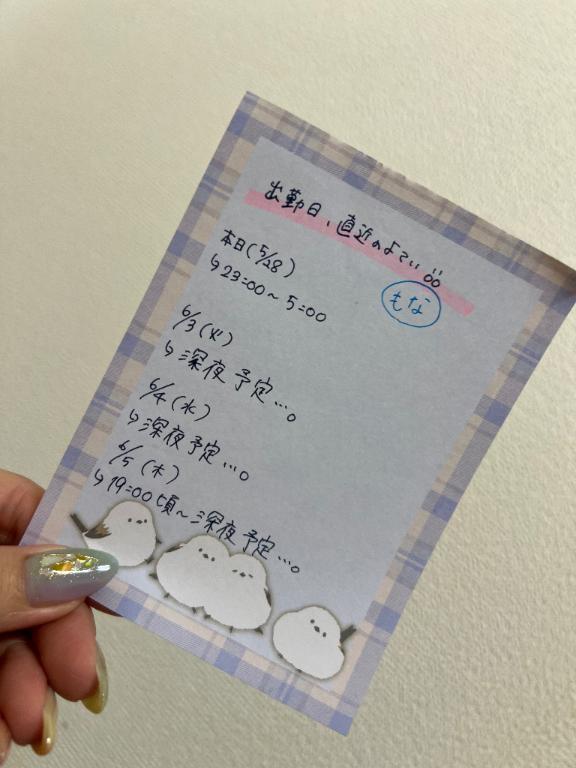 出勤日、直近のよてい
もな
本日(5/28)
↳23:00〜5:00
6/3(火)
↳深夜予定…。
6/4(水)
↳深夜予定…。
6/5(木)
↳19:00頃〜深夜予定…。